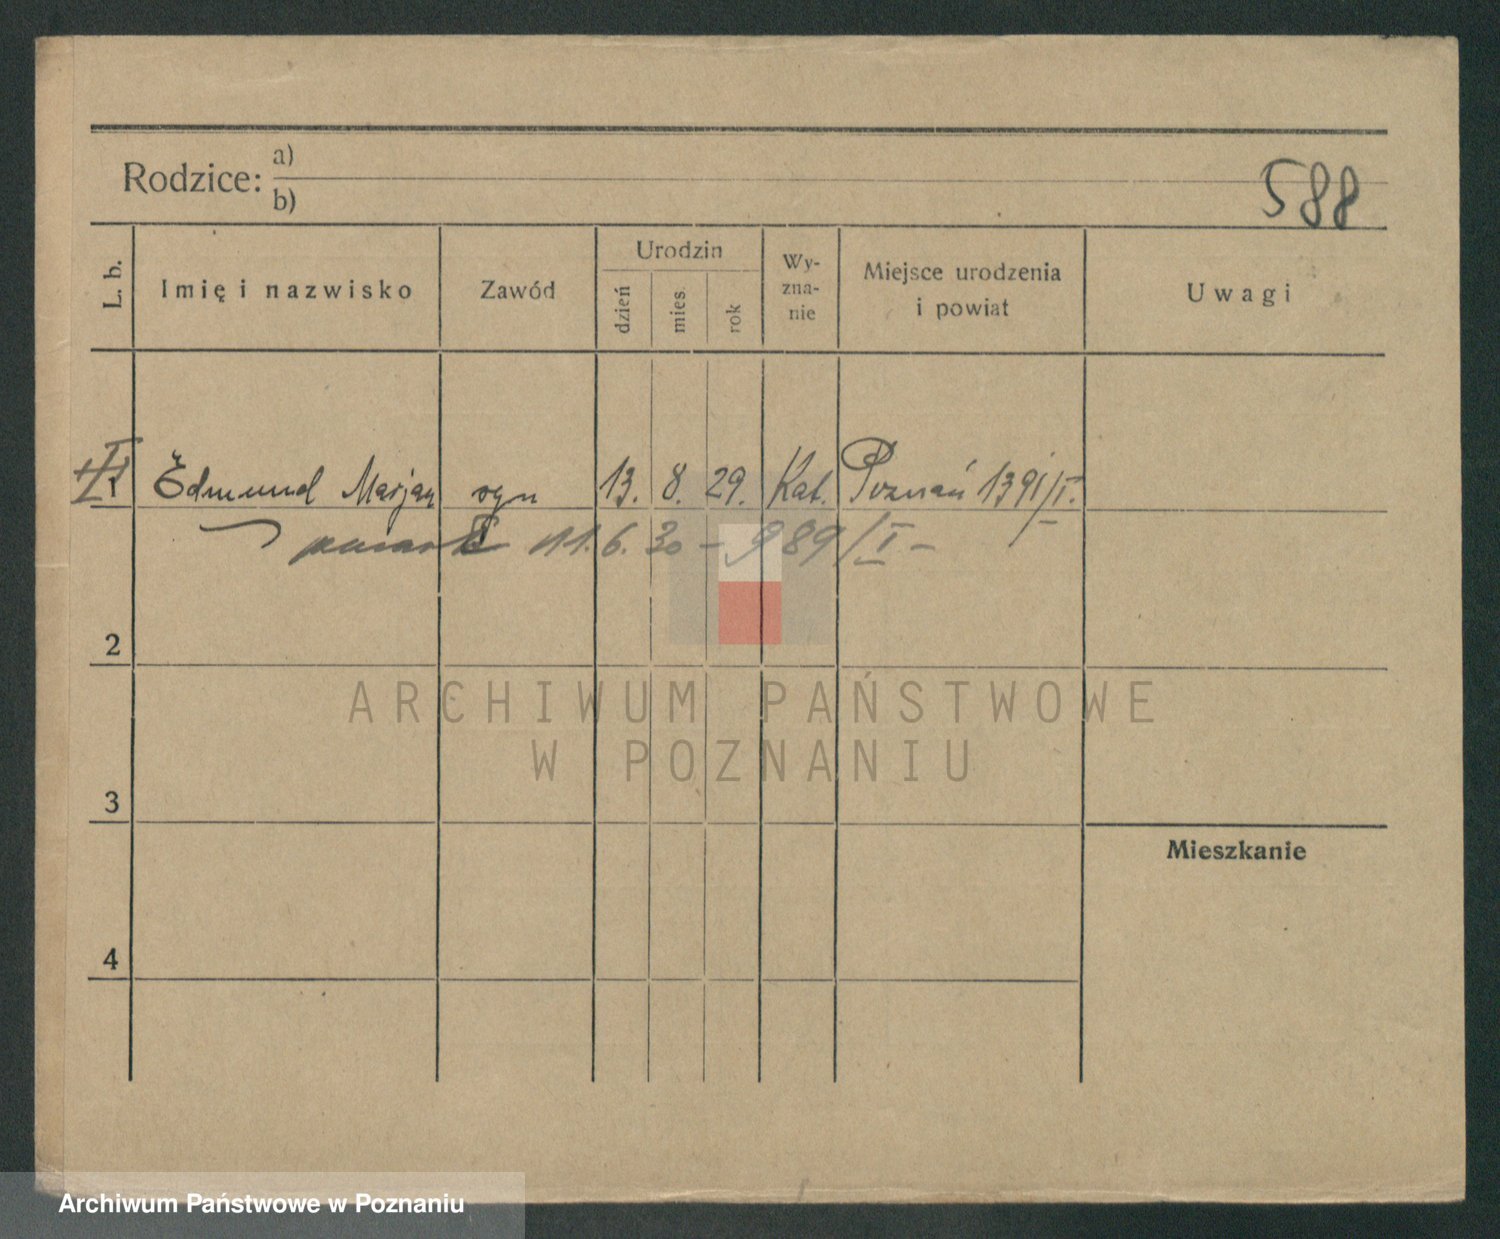 Rodzice: a)
b)
588
L. b.
Imię i nazwisko
Zawód
Urodzin
dzień
mies.
rok
Wy-
zna-
nie
Miejsce urodzenia
i powiat
Uwagi
1 Edmund Marjan syn 13. 8. 29. Kat. Poznań 1391/I.
11.6.30 – 989/I –
2
3
4
Mieszkanie
ARCHIWUM PAŃSTWOWE
W POZNANIU
Archiwum Państwowe w Poznaniu